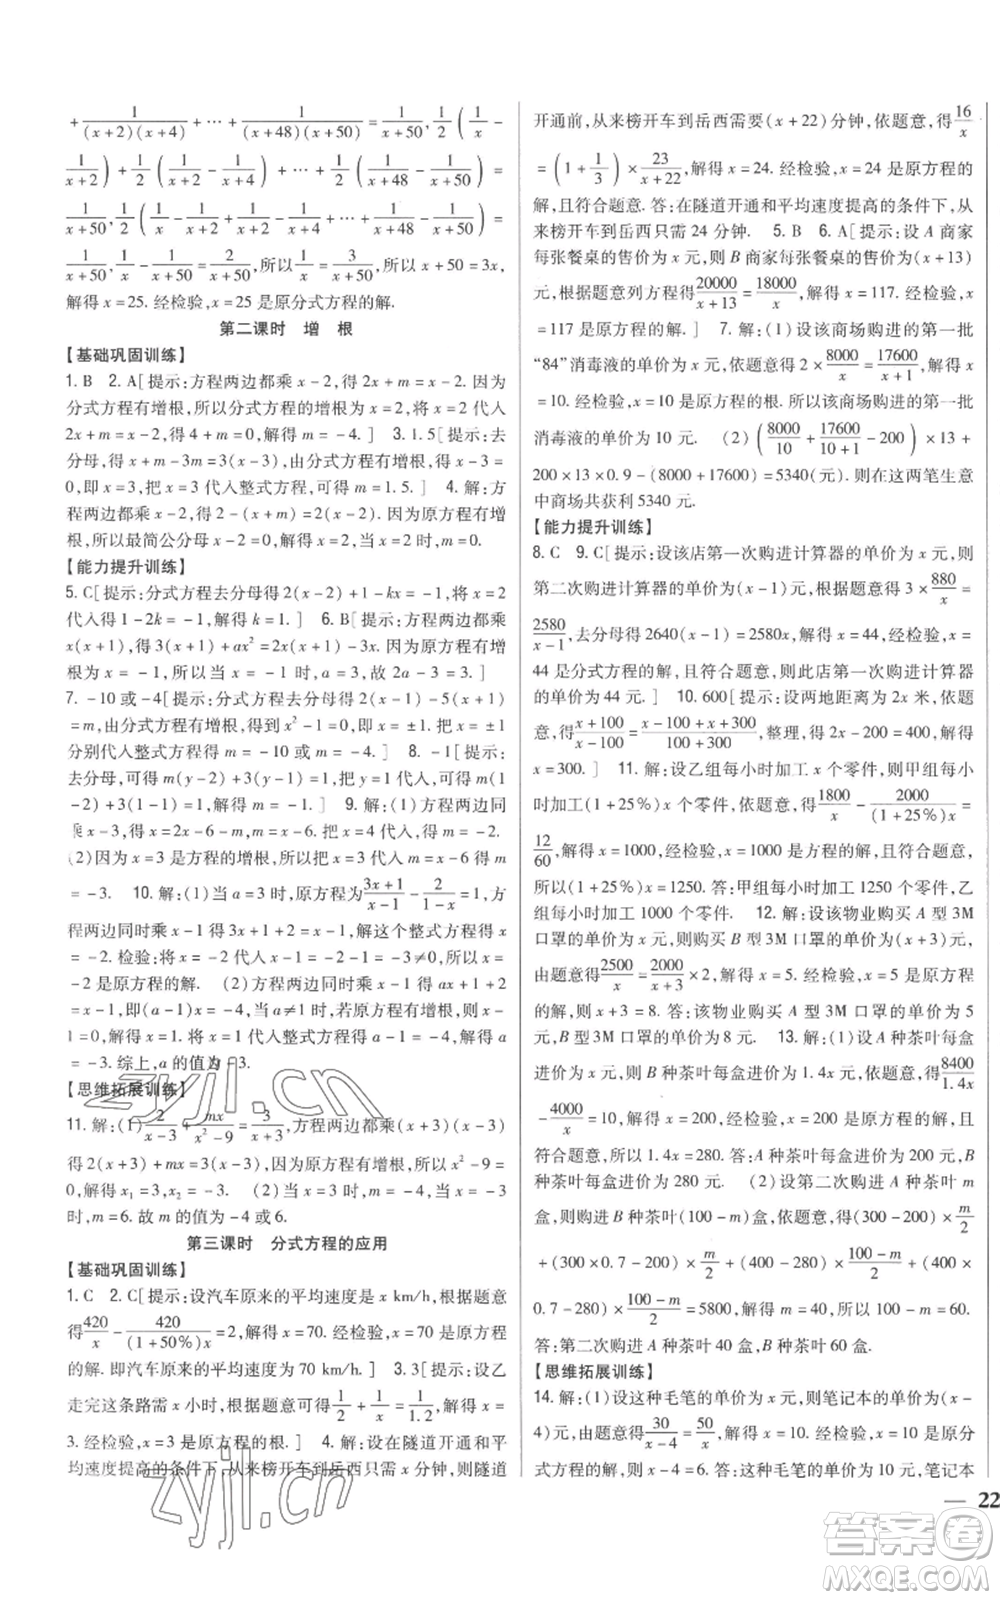 +1/((x+2)(x+4))+…+1/((x+48)(x+50))=1/(x+50),1/2(1/x-
1/(x+2))+1/2(1/(x+2)-1/(x+4))+…+1/2(1/(x+48)-1/(x+50))=
1/(x+50),1/2(1/x-1/(x+2)+1/(x+2)-1/(x+4)+…+1/(x+48)-1/(x+50))=
1/(x+50),1/2(1/x-1/(x+50))=1/(x+50),所以1/x=3/(x+50),所以x+50=3x,
解得x=25.经检验,x=25是原分式方程的解.
第二课时 增 根
【基础巩固训练】
1.B 2.A[提示:方程两边都乘x-2,得2x+m=x-2.因为
分式方程有增根,所以分式方程的增根为x=2,将x=2代入
2x+m=x-2,得4+m=0,解得m=-4.] 3.1.5[提示:去
分母,得x+m-3m=3(x-3),因为原方程有增根,所以x-3=
0,即x=3,把x=3代入整式方程,可得m=1.5.] 4.解:方
程两边都乘x-2,得3x-(x+m)=x-2,因为原方程有增
根,所以最简公分母x-2=0,解得x=2,当x=2时,m=4.
【能力提升训练】
5.C[提示:分式方程去分母得2(x-2)+1-kx=-1,将x=2
代入得1-2k=-1,解得k=1.] 6.B[提示:方程两边都乘
x(x+1),得3(x+1)+ax²=2x(x+1)-3x.因为原方程有增
根,所以增根为x=0或x=-1,当x=-1时,a=3,故a=3.]
7.-10或-4[提示:分式方程去分母得2(x-1)-5(x+1)
=m,由分式方程有增根,得到x²-1=0,即x=±1,把x=±1
分别代入整式方程得m=-10或m=-4.] 8.-1[提示:
去分母,可得m(x-2)+3(x-1)=1,把x=1代入,可得m(1
-2)+3(1-1)=1,解得m=-1.] 9.解:(1)方程两边同
乘x-3,得x=2x-6-m,将m=4代入,得x=6+m=-2.
(2)因为x=3是方程的增根,所以3=6+m,所以m
=-3. 10.解:(1)当a=3时,原方程为(3x+1)/(x-1)-2/(1-x)=1,方
程两边同时乘x-1得3x+1+2=x-1,解得x=-2.检验:当x=
-2时,x-1=-2-1=-3≠0,故方程
的解为x=-2是原方程的解. (2)方程两边同时乘x-1得ax+1+2=
x-1,即(a-1)x=-4,当a≠1时,若原方程有增根,则x-1=
0,解得x=1.将x=1代入整式方程得a-1=-4,解得a
=-3.综上,a的值为-3.
【思维拓展训练】
11.解:(1)2/(x-3)+mx/(x²-9)=3/(x+3),方程两边同乘(x+3)(x-3)
得2(x+3)+mx=3(x-3).因为原方程有增根,所以x²-9=0,
解得x₁=3,x₂=-3. (2)当x=3时,m=-4;当x=-3时,
m=6.故m的值为-4或6.
第三课时 分式方程的应用
【基础巩固训练】
1.C 2.C[提示:设汽车原来的平均速度是x km/h,根据题意
得420/x-420/((1+50%)x)=2,解得x=70.经检验,x=70是原方程
的解.即汽车原来的平均速度为70 km/h.] 3.3[提示:设乙
走完这条路需x小时,根据题意,得1/2×1/x=1/(x+2)×1/1.2,解得x=
3.经检验,x=3是原方程的根.] 4.解:设在隧道开通和平
均速度提高的条件下,从来榜开车到岳西只需x分钟,则隧道
开通前,从来榜开车到岳西需要(x+22)分钟,依题意,得16/x
=(1+1/3)×23/(x+22),解得x=24.经检验,x=24是原方程的
解,且符合题意.答:在隧道开通和平均速度提高的条件下,从
来榜开车到岳西只需24分钟. 5.B 6.A[提示:设A商家
每张餐桌的售价为x元,则B商家每张餐桌的售价为(x+13)
元,根据题意列方程得20000/(x+13)=18000/x,解得x=117.经检验,x=
117是原方程的解.] 7.解:(1)设该商场购进的第一批
“84”消毒液的单价为x元,依题意得2×8000/x=17600/(x+1),解得x
=10.经检验,x=10是原方程的根.所以该商场购进的第一批
消毒液的单价为10元. (2)(8000/10+17600/(10+1)-200)×13+
200×13×0.9-(8000+17600)=5340(元).则在这两笔生意
中商场共获利5340元.
【能力提升训练】
8.C 9.C[提示:设该店第一次购进计算器的单价为x元,则
第二次购进计算器的单价为(x-1)元,根据题意得3×880/x=
2580/(x-1),去分母得2640(x-1)=2580x,解得x=44,经检验,x=
44是分式方程的解,且符合题意,则此店第一次购进计算器
的单价为44元.] 10.600[提示:设两地距离为2x米,依题
意,得(x+100)/(x-100)=(x-100+x+300)/(100+300),整理,得2x-200=400,解得
x=300.] 11.解:设乙组每小时加工x个零件,则甲组每小
时加工(1+25%)x个零件,依题意,得1800/x-2000/((1+25%)x)=
12/60,解得x=1000,经检验,x=1000是原方程的解,且符合题意,
所以(1+25%)x=1250.答:甲组每小时加工1250个零件,乙
组每小时加工1000个零件. 12.解:设该物业购买A型3M
口罩的单价为x元,则购买B型3M口罩的单价为(x+3)元,
由题意得2500/x=2000/(x+3)×2,解得x=5.经检验,x=5是原方程的
解,则x+3=8.答:该物业购买A型3M口罩的单价为5
元,B型3M口罩的单价为8元. 13.解:(1)设A种茶叶每盒
进价为x元,则B种茶叶每盒进价为1.4x元,根据题意,得8400/1.4x
-4000/x=10,解得x=200,经检验,x=200是原方程的解,且
符合题意,所以1.4x=280.答:A种茶叶每盒进价为200元,B
种茶叶每盒进价为280元. (2)设第二次购进A种茶叶m
盒,则购进B种茶叶(100-m)盒,依题意,得(300-200)×m/2
+(300×0.7-200)×m/2+(400-280)×(100-m)/2+(400×
0.7-280)×(100-m)/2=5800,解得m=40,所以100-m=60.
答:第二次购进A种茶叶40盒,B种茶叶60盒.
【思维拓展训练】
14.解:(1)设这种毛笔的单价为x元,则笔记本的单价为(x-
4)元,根据题意得30/(x-4)=50/x,解得x=10,经检验,x=10是原分
式方程的解,则x-4=6.答:这种毛笔的单价为10元,笔记本
— 22
zyjl.cn
zyjl.cn
答案卷
MXQE.COM